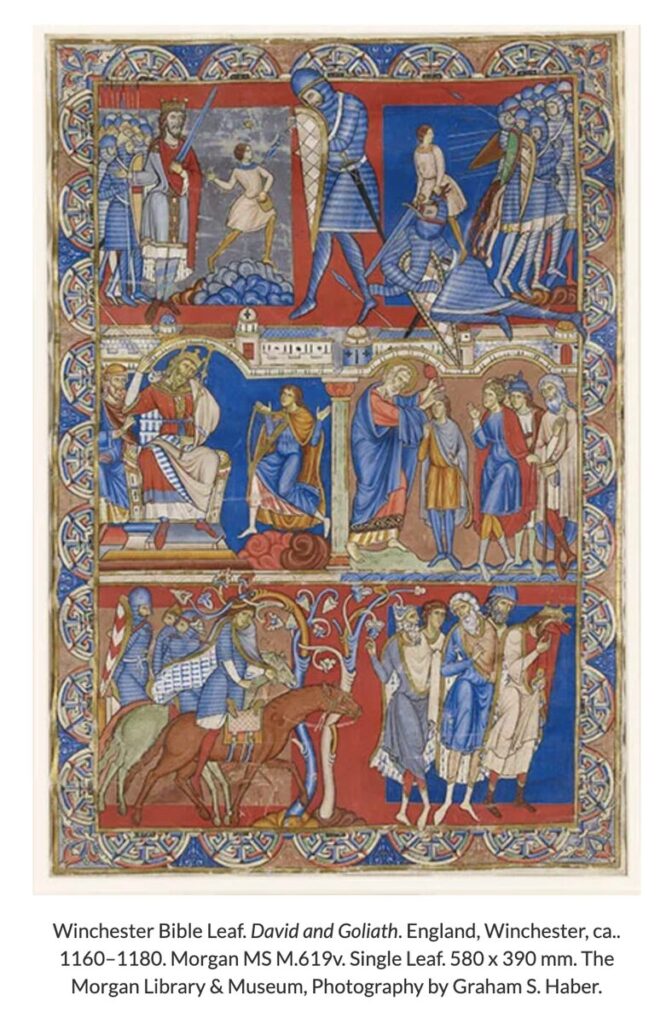 Winchester Bible Leaf. David and Goliath. England, Winchester, ca..
1160–1180. Morgan MS M.619v. Single Leaf. 580 x 390 mm. The
Morgan Library & Museum, Photography by Graham S. Haber.